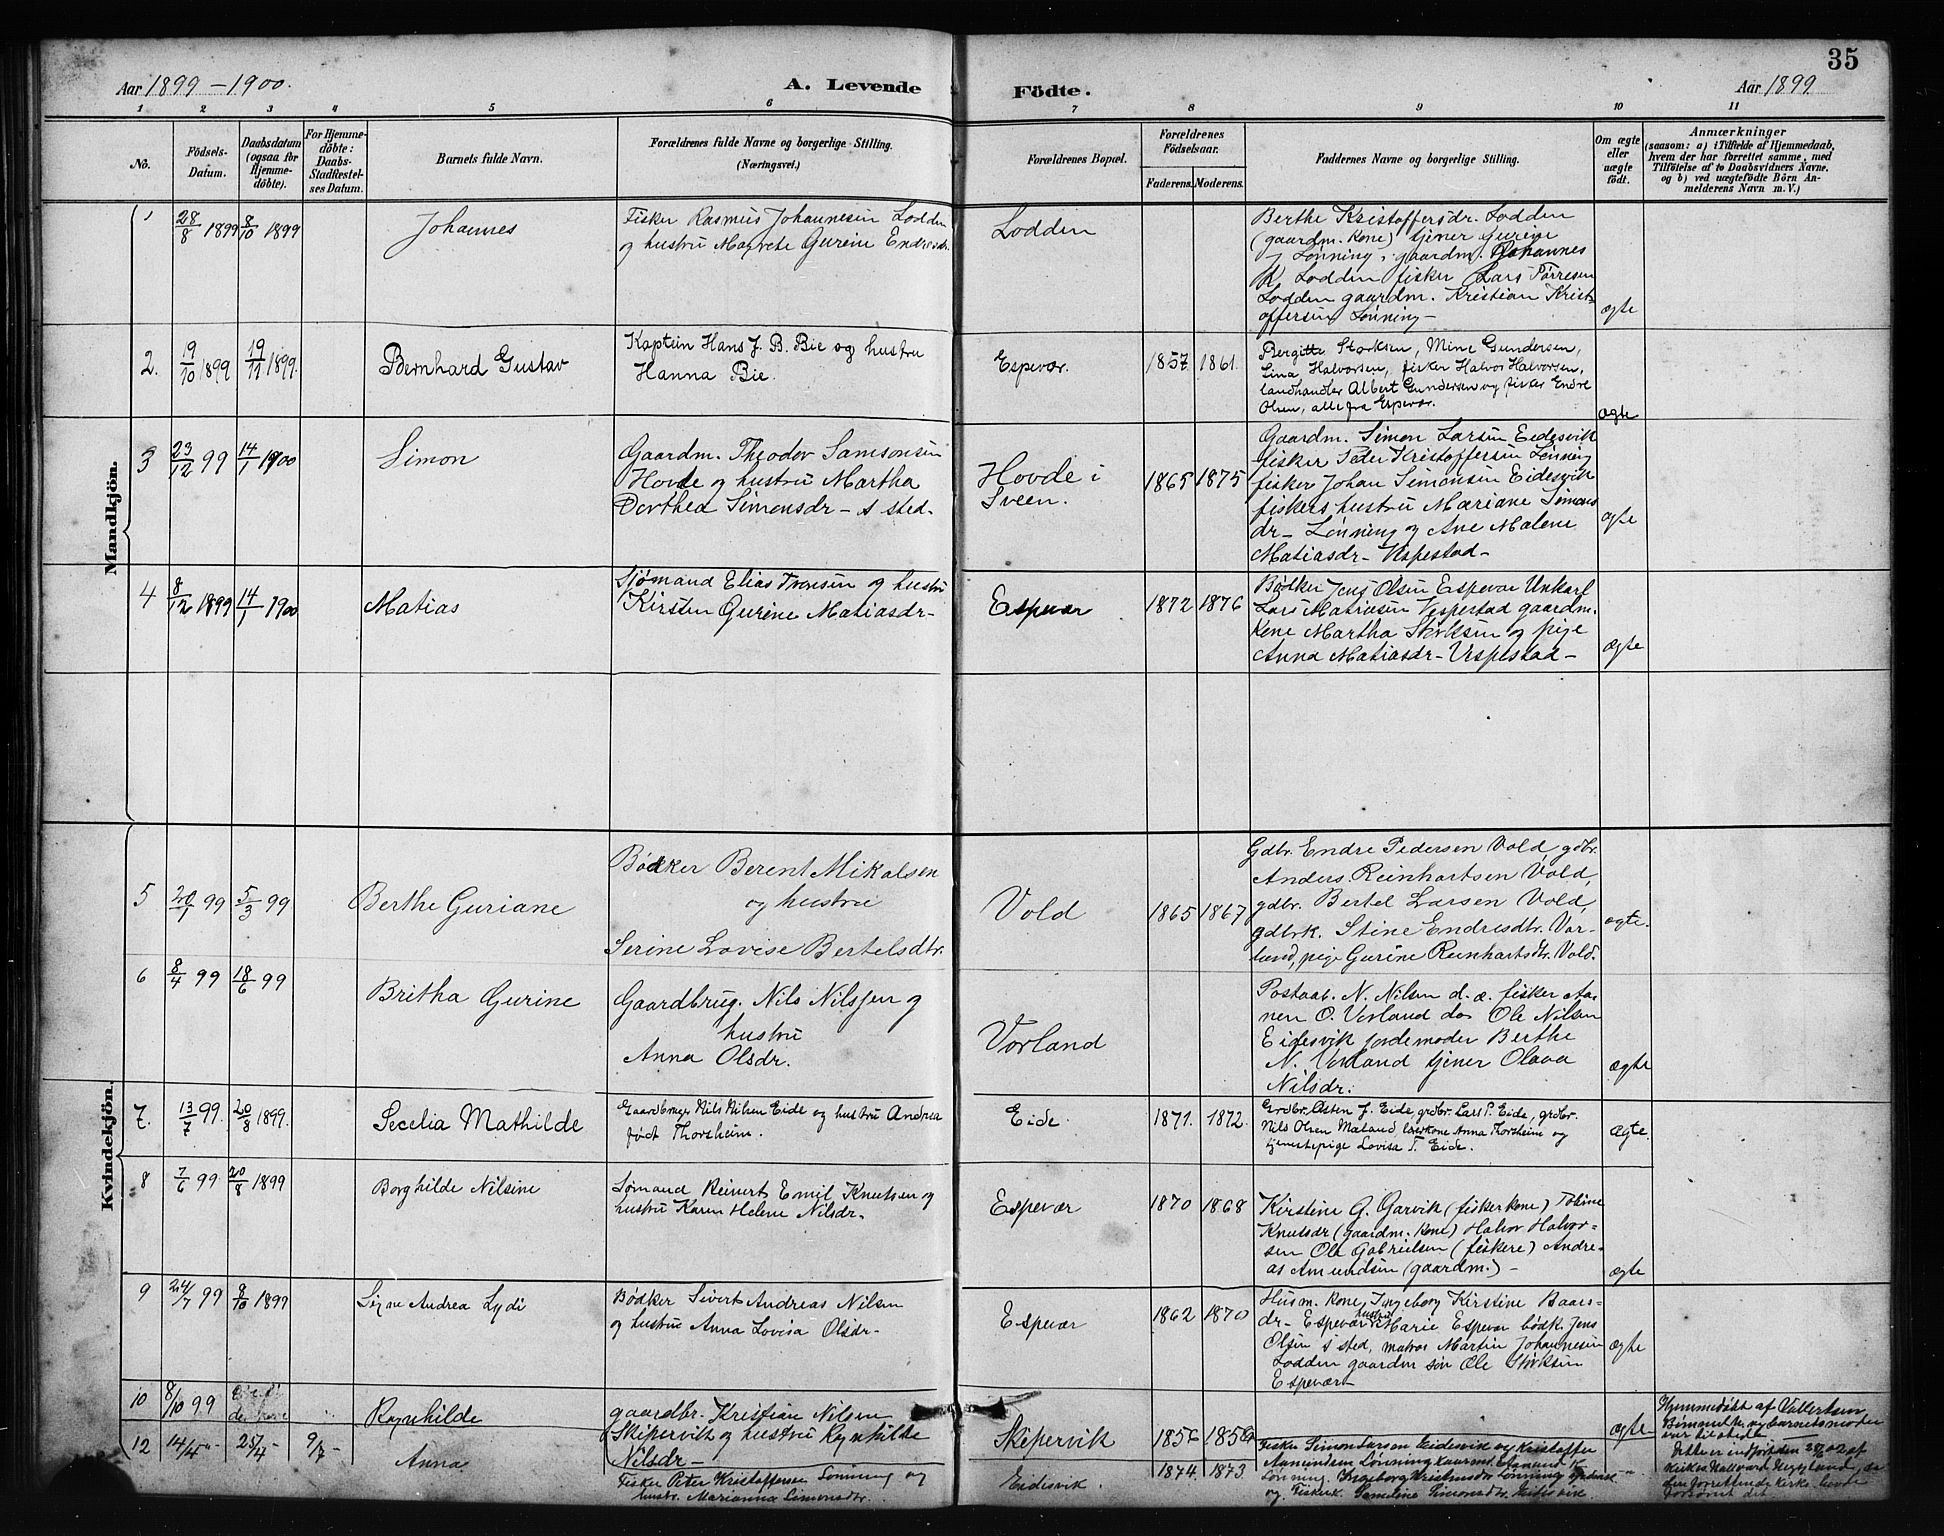 35
Aar 1899-1900. A. Levende Födte. Aar 1899
1 2 3 4 5 6 7 8 9 10 11
No.
Födsels-
Datum.
Daabsdatum
(ogsaa for
Hjemme-
döbte).
For Hjemme-
döbte:
Daabs-
Stadfæstel-
ses Datum.
Barnets fulde Navn.
Forældrenes fulde Navne og borgerlige Stilling.
(Næringsvei.)
Forældrenes Bopæl.
Forældrenes
Födselsaar.
Faderens. Moderens.
Faddernes Navne og borgerlige Stilling.
Om ægte
eller
uægte
födt.
Anmærkninger
(saasom: a) i Tilfælde af Hjemmedaab,
hvem der har forrettet samme, med
Tilföielse af to Daabsvidners Navne,
og b) ved uægtefödte Börn An-
melderens Navn m. V.)
Mandkjön.
1 28/8 1899 8/10 1899 Johannes
Fisker Rasmus Johannesen Lodden
og hustru Margrete Gurine Endresdr.
Lodden
Berthe Kristoffersdr. Lodden
(gaardm. kone) tjener Gurine
Lønning, gaardm. Johannes
K. Lodden fisker Lars Tørresen
Lodden gaardm. Kristian Krist-
offersen Lønning-
ægte
2. 19/10 1899 19/11 1899. Bernhard Gustav
Kaptein Hans J. B. Bie og hustru
Hanna Bie.
Espevær. 1857 1861
Bergitte Størksen, Mine Gundersen,
Lina Halvorsen, fisker Halvor Halvorsen,
landhandler Albert Gundersen og fisker Endre
Olsen, alle fra Espevær.
ægte
3 23/12 99 14/1 1900 Simon
Gaardm. Theodor Samsonsen
Hovde og hustru Martha
Dorthea Simonsdr- s sted-
Hovde i
Sveen. 1865 1875
Gaardm. Simon Larsen Eidesvik
fisker Peder Kristoffersen Lønning
fisker Johan Simonsen Eidesvik
fiskers hustru Mariane Simons
dr- Lønning og Ane Malene
Matiasdr- Vespestad-
ægte
4 8/12 1899 14/1 1900 Matias
Sjømand Elias Iversen og hustru
Kirsten Gurine Matiasdr-
Espevær 1872 1876
Bødker Jens Olsen Espevær Unkarl
Lars Matiasen Vespestad gaardm.
Kone Martha Størksen og pige
Anna Matiasdr- Vespestad-
ægte
Kvindekjön.
5 20/1 99 5/3 99 Berthe Guriane
Bødker Berent Mikalsen
og hustru
Serine Lovise Bertelsdtr.
Vold 1865 1867
Gdbr. Endre Pedersen Vold, gdbr.
Anders Reinhartsen Vold,
gdbr. Bertel Larsen Vold,
gdbrk. Stine Endresdtr. Vor-
land, pige Gurine Reinhartsdtr. Vold.
ægte.
6 8/4 99 18/6 99 Britha Gurine
Gaardbrug. Nils Nilssen og
hustru
Anna Olsdr.
Vorland
Postaab. N. Nilsen d. æ. fisker Aa-
nen O. Vorland do Ole Nilsen
Eidesvik jordemoder Berthe
N. Vorland tjener Olava
Nilsdr.
ægte
7. 13/7 99. 20/8 1899. Secelia Mathilde
Gaardbruger Nils Nilsen Eide og hustru Andrea
født Thorsheim.
Eide. 1871. 1872.
Grdbr. Østen J. Eide, grdbr. Lars P. Eide, grdbr.
Nils Olsen Mæland lærkone Anna Thorsheim og
tjenestepige Lovisa T. Eide.
ægte.
8 7/6 99 20/8 1899 Borghilde Nilsine
Sømand Reinert Emil Knutsen og
hustru Karen Helene Nilsdr.
Espevær 1870 1868
Kirstine G. Garvik (fiskerkone) Toline
Knutsdr (gaardm. kone) Halvor Halvor-
sen Ole Gabrielsen (fiskere) Andre-
as Amundsen (gaardm.)-
ægte
9 24/7 99 8/10 1899 Signe Andrea Lydi
Bødker Sivert Andreas Nilsen
og hustru Anna Lovisa Olsdr-
Espevær 1862 1870
Husm. kone Ingeborg Kirstine Baars-
dr- Espevær hustru Marie Espevær bødk. Jens
Olsen s sted, matros Martin Johannesen
Lodden gaardm søn Ole Størksen
Espevær-
ægte
10 8/10 99 Ragnhilde
gaardbr. Kristian Nilsen
Skipervik og hustru Ragnhilde
Nilsdr-
Skipervik
ægte
Hjemmedøbt af Vallertsen
12 14/4 25/4- 9/7- Anna
Fisker Peter Kristoffersen Lønning og
hustr. Marianna Simonsdtr.
Eidesvik. 1874 1873
Fisker Simon Larsen Eidesvik og Kristoffer
Aamundsen Lønning
Lønning. Ingeborg Kristensdtr Lønning
og Fiskerk. Simonsdtr. Eidesvik